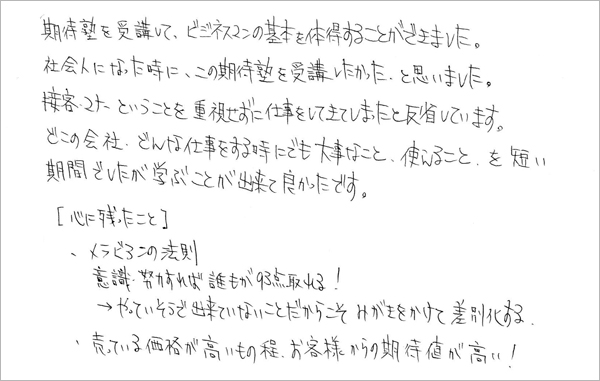 期待塾を受講して、ビジネスマンの基本を体得することができました。
社会人になった時に、この期待塾を受講したかった、と思いました。
接客・マナーということを重視せずに仕事をして来てしまったと反省しています。
どこの会社、どんな仕事をする時にでも大事なこと、使えること、を短い
期間でしたが学ぶことが出来て良かったです。
[心に残ったこと]
・メラビアンの法則
意識・努力すれば誰もが93点取れる!
→やっていそうで出来ていないことだからこそみがきをかけて差別化する。
・売っている価格が高いもの程、お客様からの期待値が高い!